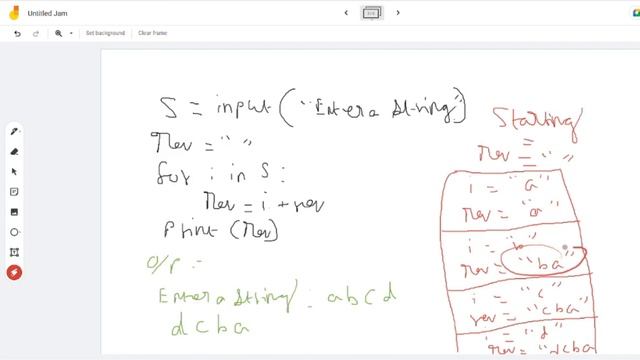 Untitled Jam
Set background
Clear frame
S = input("Enter a string")
rev = " "
for i in S:
rev = i + rev
print(rev)
O/P :-
Enter a string : abcd
dcba
Starting
rev = " "
i = "a"
rev = "a"
i = "b"
rev = "ba"
i = "c"
rev = "cba"
i = "d"
rev = "dcba